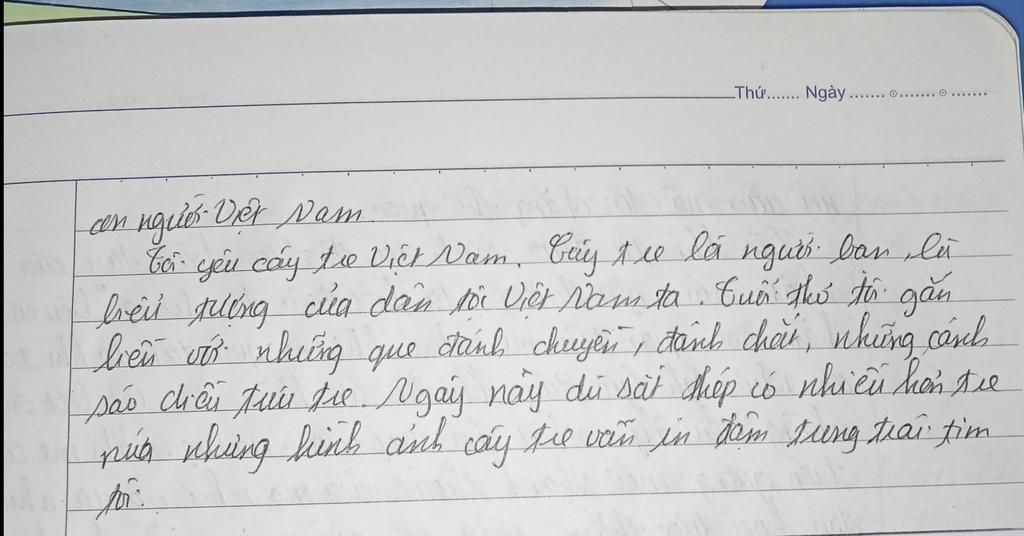 Thứ....... Ngày ....... ⊙ ....... ⊙ .......
con người Việt Nam.
Tôi yêu cây tre Việt Nam. Cây tre là người bạn, là
biểu tượng của dân tộc Việt Nam ta. Tuổi thơ tôi gắn
liền với những que đánh chuyền, đánh chắt, những cánh
sáo diều trúc tre. Ngày nay dù sắt thép có nhiều hơn tre
nứa nhưng hình ảnh cây tre vẫn in đậm trong trái tim
tôi.